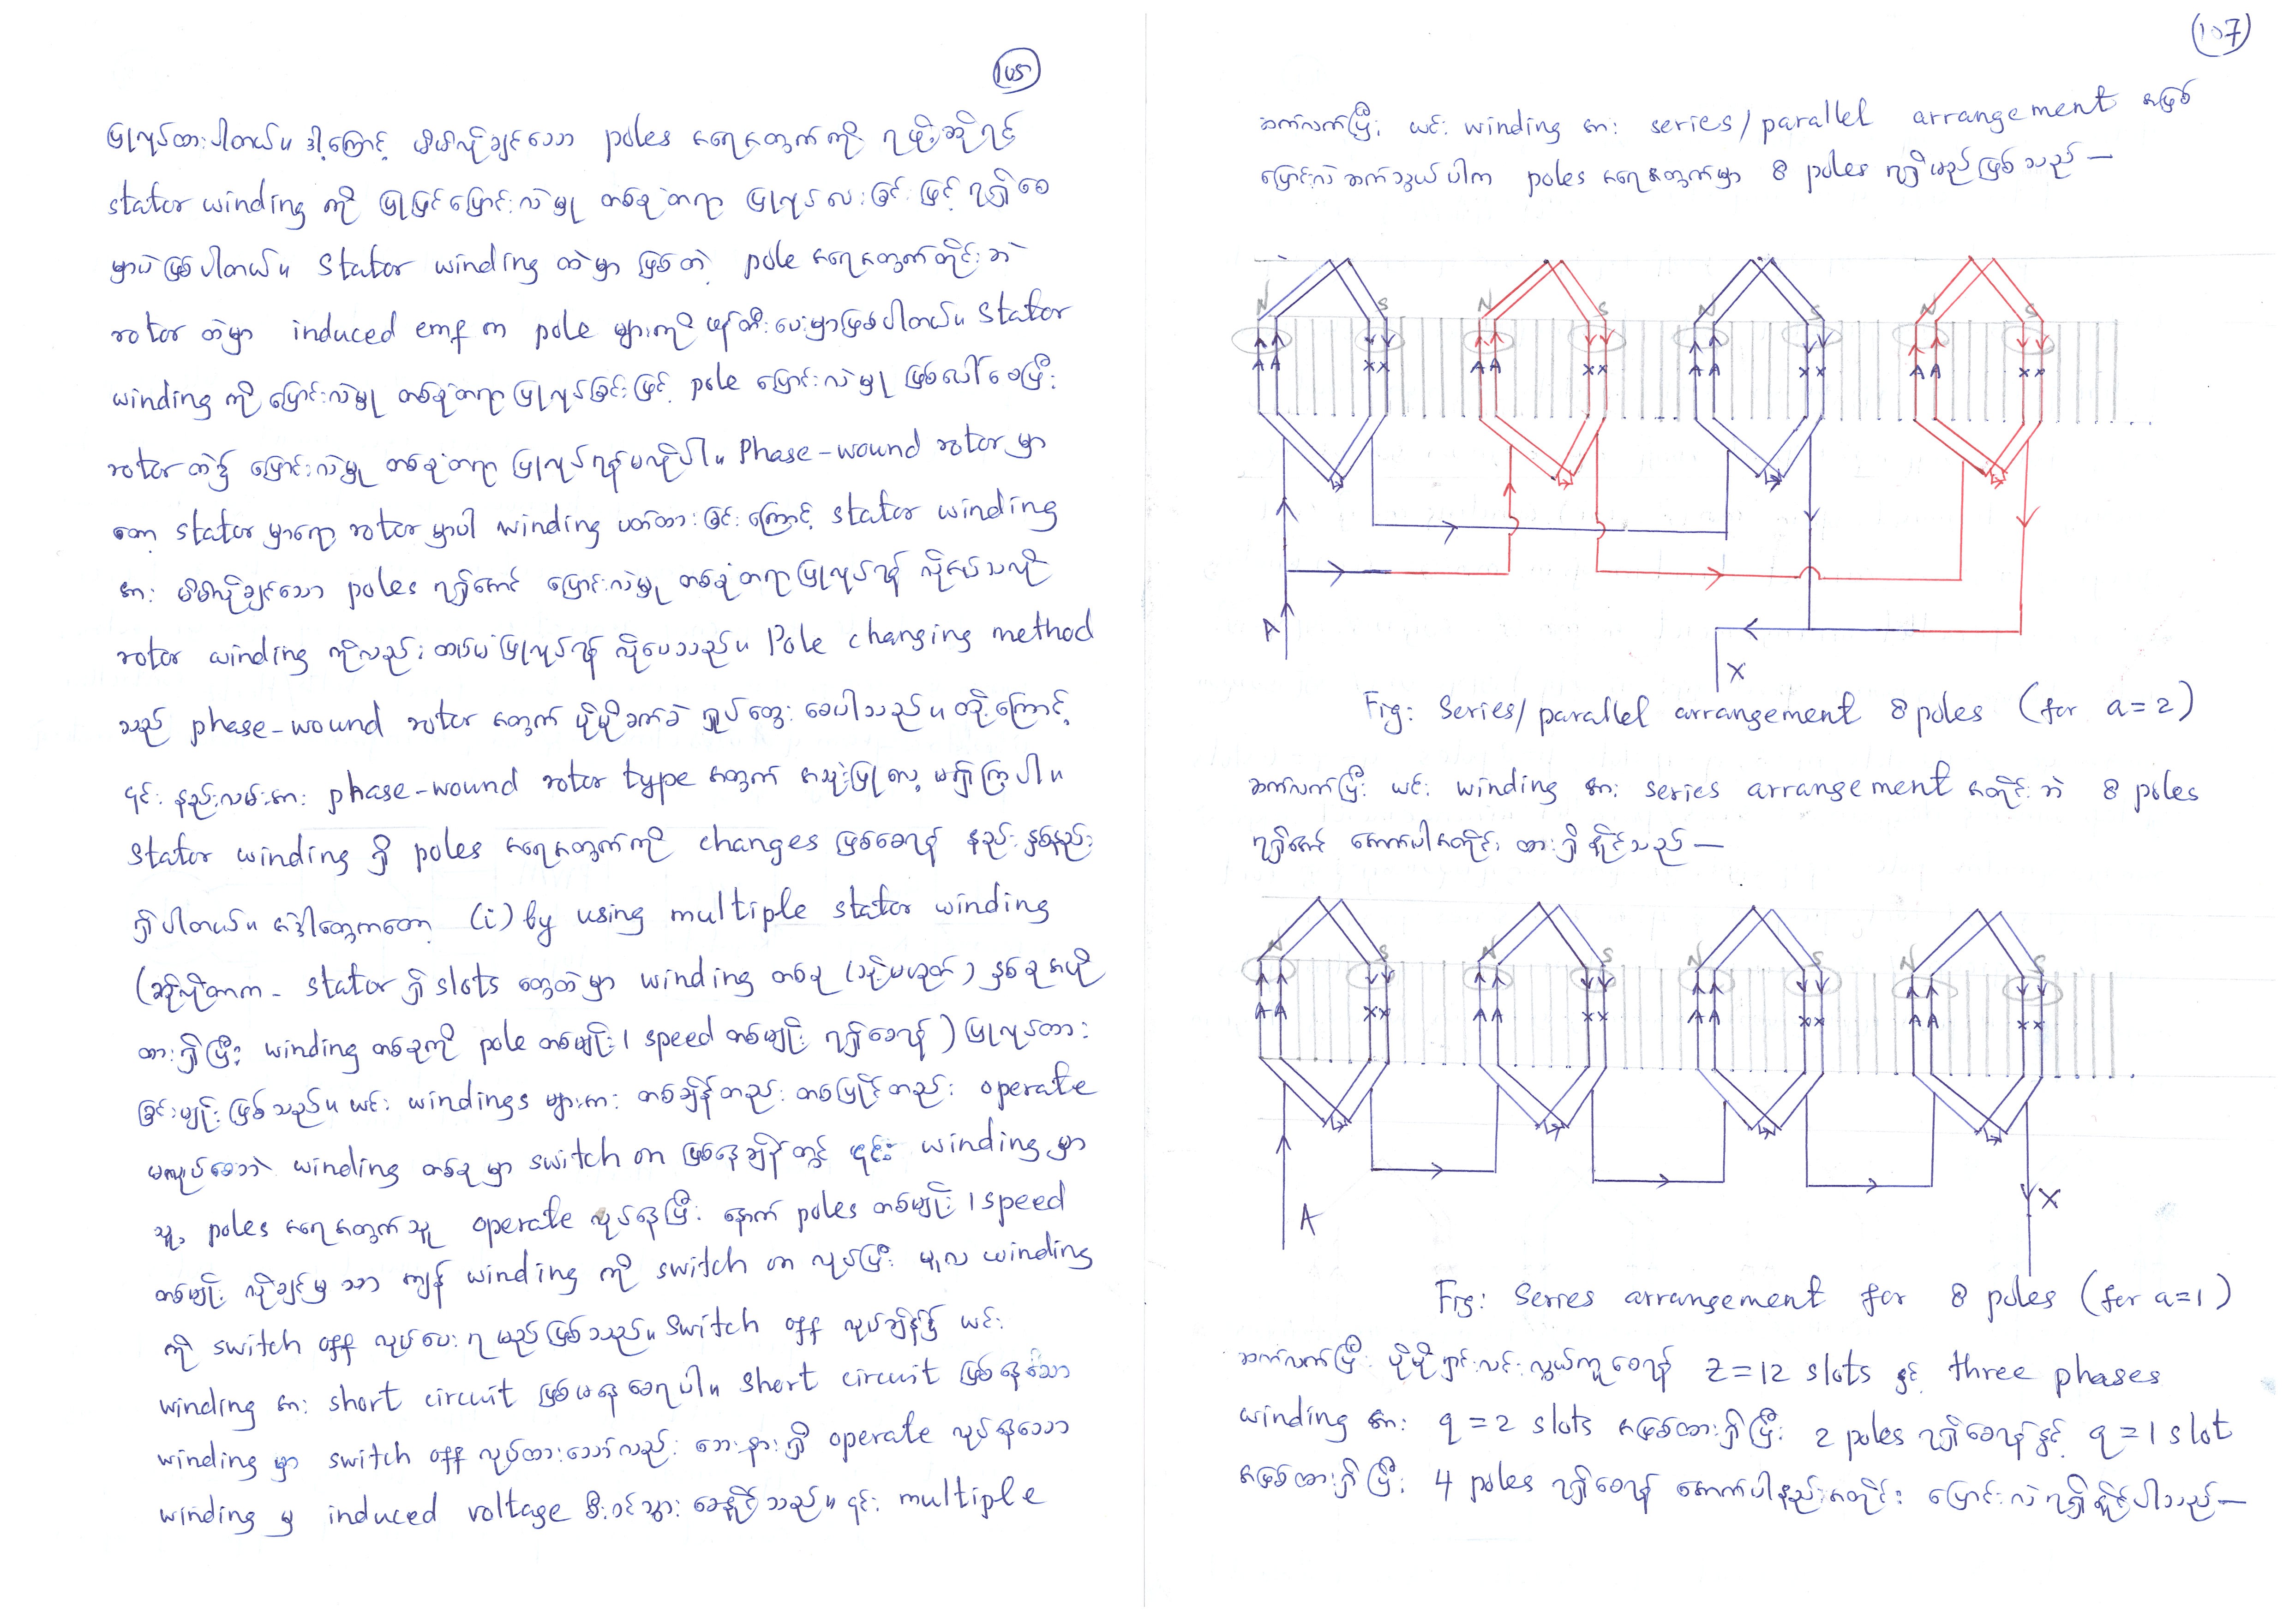 105
ပြုလုပ်ထားပါတယ်။ ဒါ့ကြောင့် မိမိလိုချင်သော poles အရေအတွက်ကို ရဖို့ဆိုရင်
stator winding ကို ပြုပြင်ပြောင်းလဲမှု တစ်ခုတရာ ပြုလုပ်ပေးခြင်းဖြင့် ရရှိစေ
မှာပဲဖြစ်ပါတယ်။ Stator winding ထဲမှာ ဖြစ်တဲ့ pole အရေအတွက်တိုင်းဘဲ
rotor ထဲမှာ induced emf က pole များကို ဖန်တီးပေးမှာဖြစ်ပါတယ်။ Stator
winding ကို ပြောင်းလဲမှု တစ်ခုတရာ ပြုလုပ်ခြင်းဖြင့် pole ပြောင်းလဲမှု ဖြစ်ပေါ်စေပြီး
rotor ထဲ၌ ပြောင်းလဲမှု တစ်ခုတရာ ပြုလုပ်ရန်မလိုပါ။ Phase-wound rotor မှာ
တော့ stator မှာရော rotor မှာပါ winding ပတ်ထားခြင်းကြောင့် stator winding
အား မိမိလိုချင်သော poles ရရှိအောင် ပြောင်းလဲမှု တစ်ခုတရာပြုလုပ်ရန် လိုအပ်သလို
rotor winding ကိုလည်း ထပ်မံပြုလုပ်ရန် လိုပေသည်။ Pole changing method
သည် phase-wound rotor အတွက် ပိုမိုခက်ခဲ ရှုပ်ထွေးစေပါသည်။ ထို့ကြောင့်
၎င်းနည်းလမ်းအား phase-wound rotor type အတွက် အသုံးပြုလေ့ မရှိကြပါ။
Stator winding ရှိ poles အရေအတွက်ကို changes ဖြစ်စေရန် နည်းနှစ်နည်း
ရှိပါတယ်။ အဲဒါတွေကတော့ (i) by using multiple stator winding
(ဆိုလိုတာက - stator ရှိ slots တွေထဲမှာ winding တစ်ခု (သို့မဟုတ်) နှစ်ခုအပို
ထားရှိပြီး winding တစ်ခုကို pole တစ်မျိုး၊ speed တစ်မျိုး ရရှိစေရန်) ပြုလုပ်ထား
ခြင်းမျိုးဖြစ်သည်။ ယင်း windings များအား တစ်ချိန်တည်း တစ်ပြိုင်တည်း operate
မလုပ်စေဘဲ winding တစ်ခုမှာ switch on ဖြစ်နေချိန်တွင် ၎င်း winding မှာ
သူ့ poles အရေအတွက်သူ operate လုပ်နေပြီး နောက် poles တစ်မျိုး၊ speed
တစ်မျိုး လိုချင်မှသာ ကျန် winding ကို switch on လုပ်ပြီး မူလ winding
ကို switch off လုပ်ပေးရမည်ဖြစ်သည်။ Switch off လုပ်ချိန်၌ ယင်း
winding အား short circuit ဖြစ်မနေစေရပါ။ Short circuit ဖြစ်နေသော
winding မှာ switch off လုပ်ထားသော်လည်း ဘေးနားရှိ operate လုပ်နေသော
winding မှ induced voltage စီးဝင်သွားစေနိုင်သည်။ ၎င်း multiple
107
ဆက်လက်ပြီး ယင်း winding အား series/parallel arrangement အဖြစ်
ပြောင်းလဲဆက်သွယ်ပါက poles အရေအတွက်မှာ 8 poles ရရှိမည်ဖြစ်သည်—
N S N S N S N S
AA XX AA XX AA XX AA XX
A
X
Fig: Series/parallel arrangement 8 poles (for a=2)
ဆက်လက်ပြီး ယင်း winding အား series arrangement အတိုင်းဘဲ 8 poles
ရရှိအောင် အောက်ပါအတိုင်း ထားရှိနိုင်သည်—
N S N S N S N S
AA XX AA XX AA XX AA XX
A
X
Fig: Series arrangement for 8 poles (for a=1)
ဆက်လက်ပြီး ပိုမိုရှင်းလင်းလွယ်ကူစေရန် Z=12 slots နှင့် three phases
winding အား q=2 slots အဖြစ်ထားရှိပြီး 2 poles ရရှိစေရန်နှင့် q=1 slot
အဖြစ်ထားရှိပြီး 4 poles ရရှိစေရန် အောက်ပါနည်းအတိုင်း ပြောင်းလဲရရှိနိုင်ပါသည်—